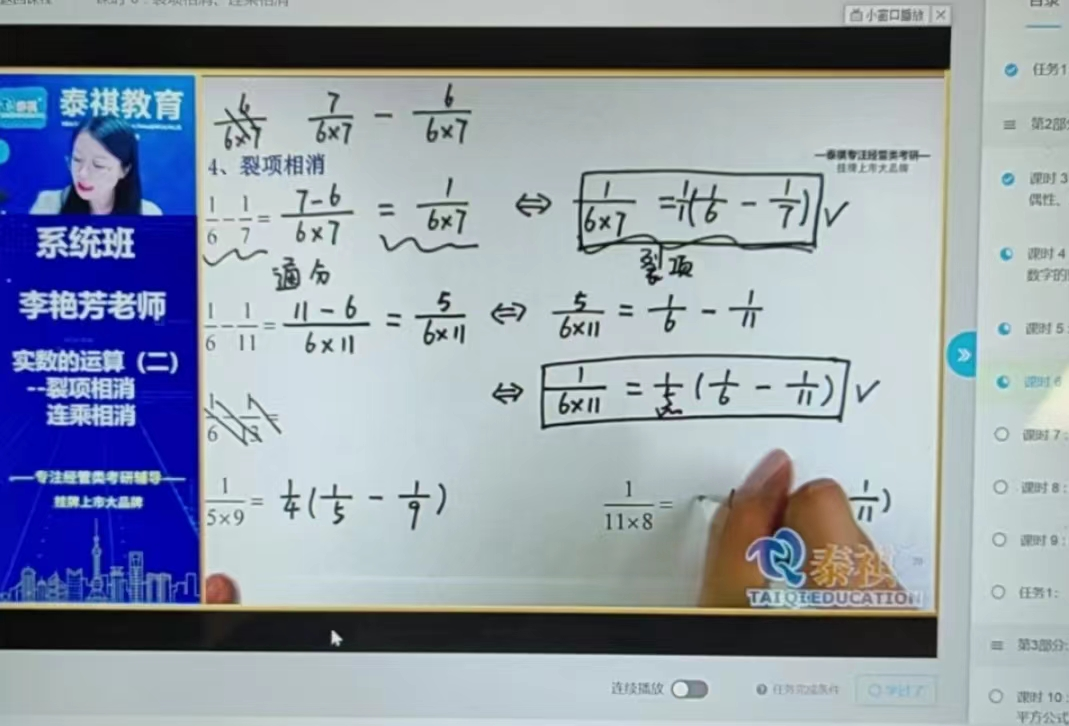 小窗口播放
目录
泰祺教育
系统班
李艳芳老师
实数的运算（二）
--裂项相消
连乘相消
——专注经管类考研辅导——
挂牌上市大品牌
6/(6×7) 7/(6×7) - 6/(6×7)
4、裂项相消
—泰祺专注经管类考研—
挂牌上市大品牌
1/6 - 1/7 = (7-6)/(6×7) = 1/(6×7) ⇔ 1/(6×7) = 1/1(1/6 - 1/7) ✓
通分
裂项
1/6 - 1/11 = (11-6)/(6×11) = 5/(6×11) ⇔ 5/(6×11) = 1/6 - 1/11
⇔ 1/(6×11) = 1/5(1/6 - 1/11) ✓
1/(5×9) = 1/4(1/5 - 1/9)
1/(11×8) = 1/11)
泰祺
TAIQI EDUCATION
连续播放
任务完成条件
学过了
任务1
第2部
课时 3
偶性、
课时 4
数字的
课时 5：
课时 6
课时 7：
课时 8：
课时 9：
任务1：
第3部分：
课时 10：
平方公式